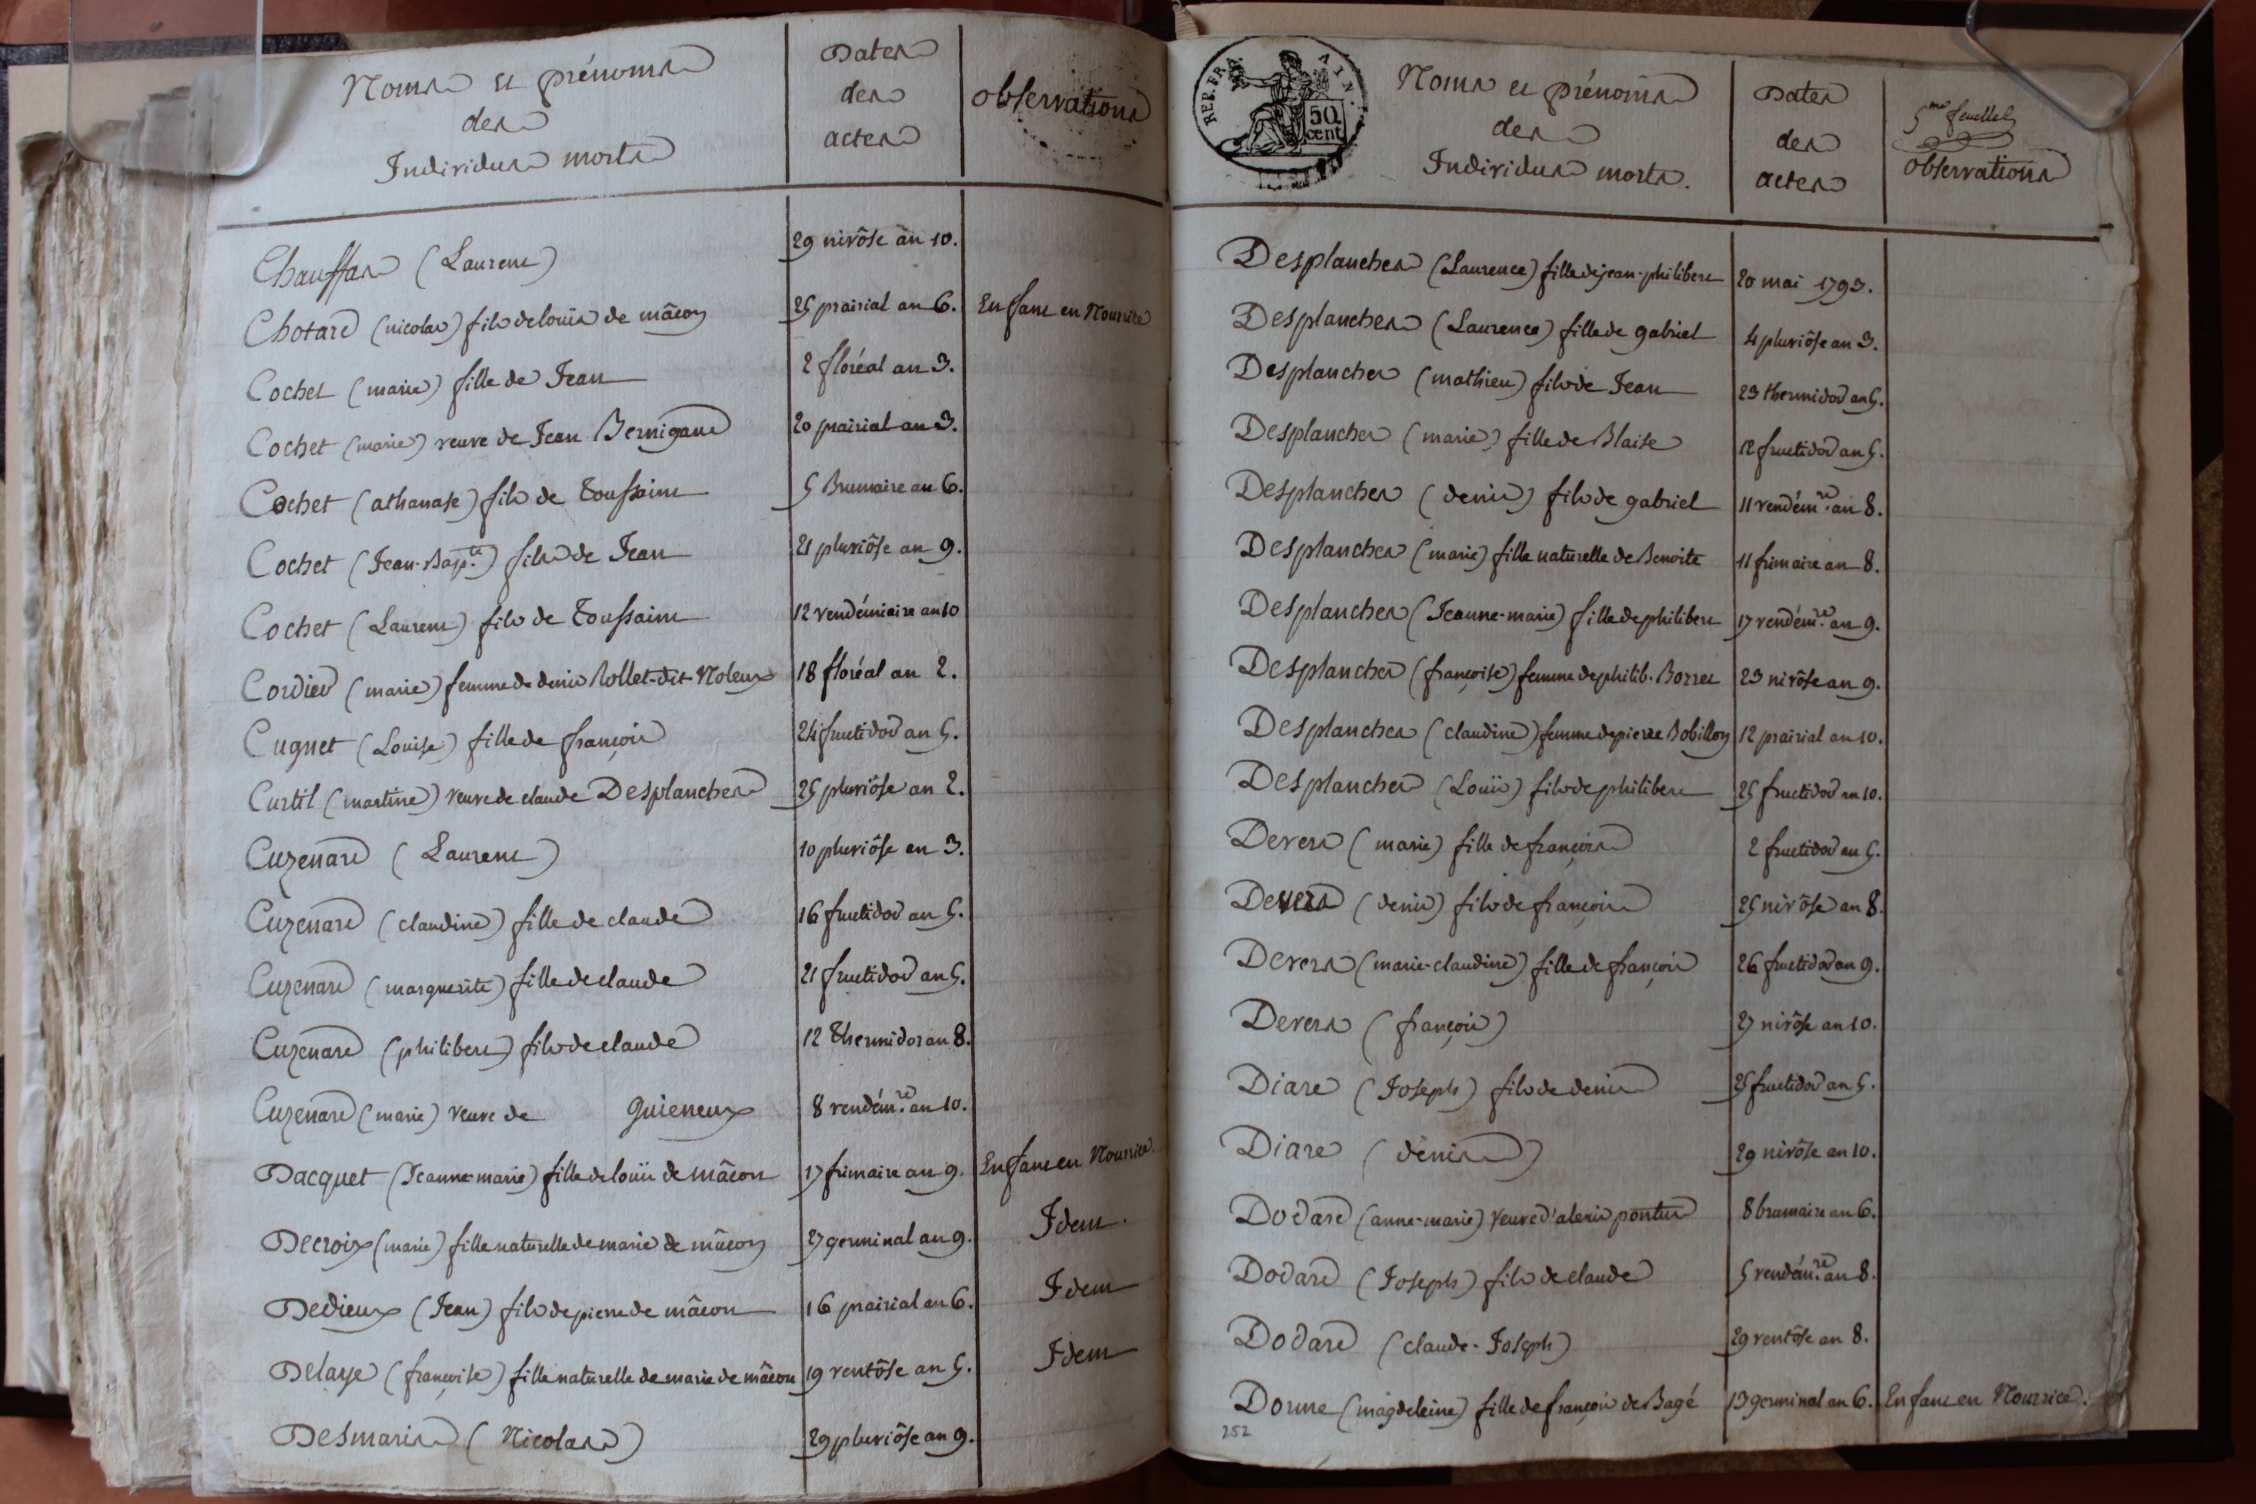 Noms et prénoms
des
Individus morts
Dates
des
actes
observations
Chauffas (Laurent)
29 nivôse an 10.
Chotard (nicolas) fils de louis de mâcon
25 prairial an 6.
Enfant en Nourrice
Cochet (marie) fille de Jean
2 floréal an 3.
Cochet (marie) veuve de Jean Bernigaud
20 prairial an 3.
Cochet (athanase) fils de Toussaint
5 Brumaire an 6.
Cochet (Jean-Bap.te) fils de Jean
21 pluviôse an 9.
Cochet (Laurent) fils de Toussaint
12 vendémiaire an 10
Cordier (marie) femme de denis Rollet-dit-Noleux
18 floréal an 2.
Cugnet (Louise) fille de françois
24 fructidor an 5.
Curtil (martine) veuve de claude Desplanches
25 pluviôse an 2.
Cuzenard (Laurent)
10 pluviôse an 3.
Cuzenard (claudine) fille de claude
16 fructidor an 5.
Cuzenard (marguerite) fille de claude
21 fructidor an 5.
Cuzenard (philibert) fils de claude
12 Thermidor an 8.
Cuzenard (marie) veuve de Guieneux
8 vendém.re an 10.
Dacquet (Jeanne-marie) fille de louis de mâcon
17 frimaire an 9.
Enfant en Nourrice.
Decroix (marie) fille naturelle de marie de mâcon
27 germinal an 9.
Idem.
Dedieux (Jean) fils de pierre de mâcon
16 prairial an 6.
Idem
Delaye (françoise) fille naturelle de marie de mâcon
19 ventôse an 5.
Idem
Desmaris (Nicolas)
29 pluviôse an 9.
REP. FRA.
AIN.
50
cent
Noms et prénoms
des
Individus morts.
Dates
des
actes
5me feuillet
observations
Desplanches (Laurence) fille de jean-philibert
20 mai 1793.
Desplanches (Laurence) fille de gabriel
4 pluviôse an 3.
Desplanches (mathieu) fils de Jean
23 thermidor an 5.
Desplanches (marie) fille de Blaise
12 fructidor an 5.
Desplanches (denis) fils de gabriel
11 vendém.re an 8.
Desplanches (marie) fille naturelle de Benoite
11 frimaire an 8.
Desplanches (Jeanne-marie) fille de philibert
17 vendém.re an 9.
Desplanches (françoise) femme de philib. Borret
23 nivôse an 9.
Desplanches (claudine) femme de pierre Bobillon
12 prairial an 10.
Desplanches (Louis) fils de philibert
25 fructidor an 10.
Devers (marie) fille de françois
2 fructidor an 5.
Devers (denis) fils de françois
25 nivôse an 8.
Devers (marie-claudine) fille de françois
26 fructidor an 9.
Devers (françois)
27 nivôse an 10.
Diard (Joseph) fils de denis
25 fructidor an 5.
Diard (denis)
29 nivôse an 10.
Dodard (anne-marie) veuve d'alexis pontus
8 brumaire an 6.
Dodard (Joseph) fils de claude
5 vendém.re an 8.
Dodard (claude-Joseph)
29 ventôse an 8.
Donne (magdeleine) fille de françois de Bagé
13 germinal an 6.
Enfant en Nourrice.
252